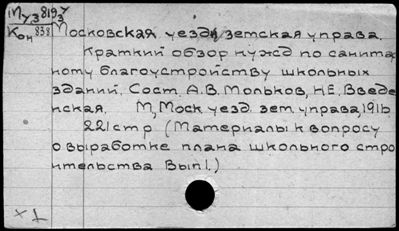 Му3 819/3
Кон 838
Московская уездн земская управа.
Краткий обзор нужд по санитар
ному благоустройству школьных
зданий. Сост. А.В. Мольков, Н.Е. Введе
нская. М, Моск уезд. зем. управа, 1916
221 стр (Материалы к вопросу
о выработке плана школьного стро
ительства Вып 1.)